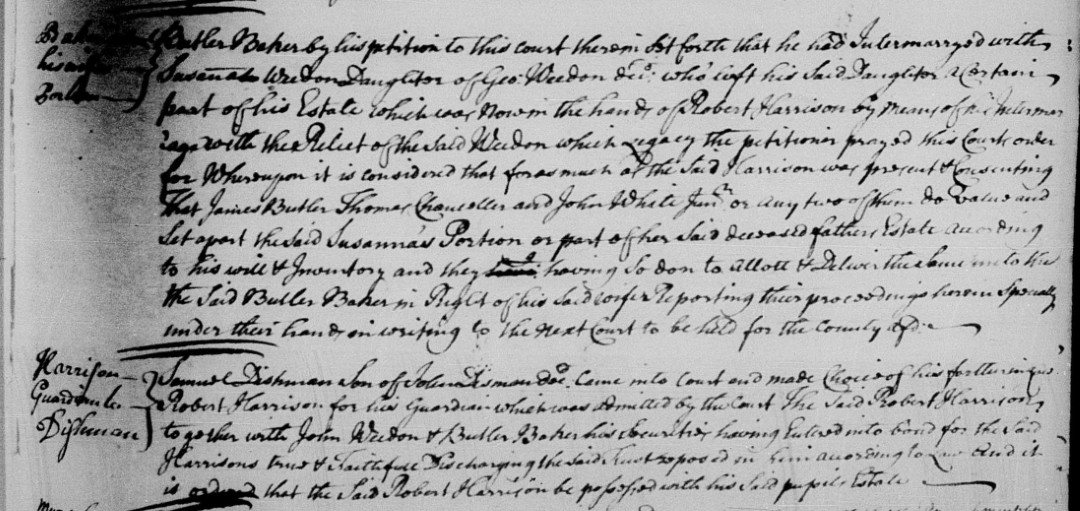 Butler Baker by his petition to this court therein Set forth that he had Intermarryed with
his wifes Susannah Weedon Daughter of Geo: Weedon decd: who left his Said Daughter a Certain
Portion part of his Estate which was Now in the hands of Robert Harrison by Means of his Intermar
iage with the Relict of the Said Weedon which Legacy the petitioner prayed this Courts order
for Whereupon it is considered that for as much as the Said Harrison was present & Consenting
That James Butler Thomas Chanceller and John White Junr. or any two of them do Value and
Set apart the Said Susanna's Portion or part of her Said deceased fathers Estate according
to his will & Inventory and they having So don to Allott & Deliver the same unto the
the Said Butler Baker in Right of his Said wife Reporting their proceedings herein Specially
under their hands in writing to the next Court to be held for the County afd:
Harrison Samuel Dishman Son of John Disman decd. Came into Court and made Choice of his father in Law
Guardian to Robert Harrison for his Guardian which was admitted by the Court The Said Robert Harrison
Dishman together with John Weedon & Butler Baker his Securities having Entered into bond for the Said
Harrisons true & Faithfull Discharging the Said trust reposed in him according to Law And it
is ordered that the Said Robert Harrison be possessed with his Said pupils Estate